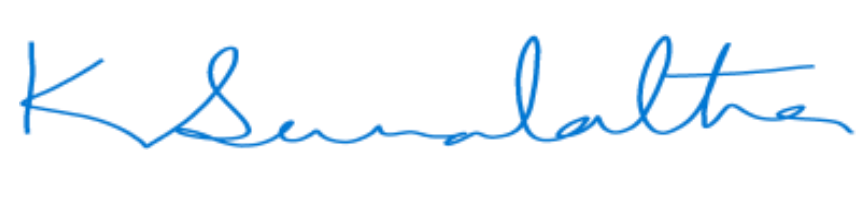 K Sumalatha